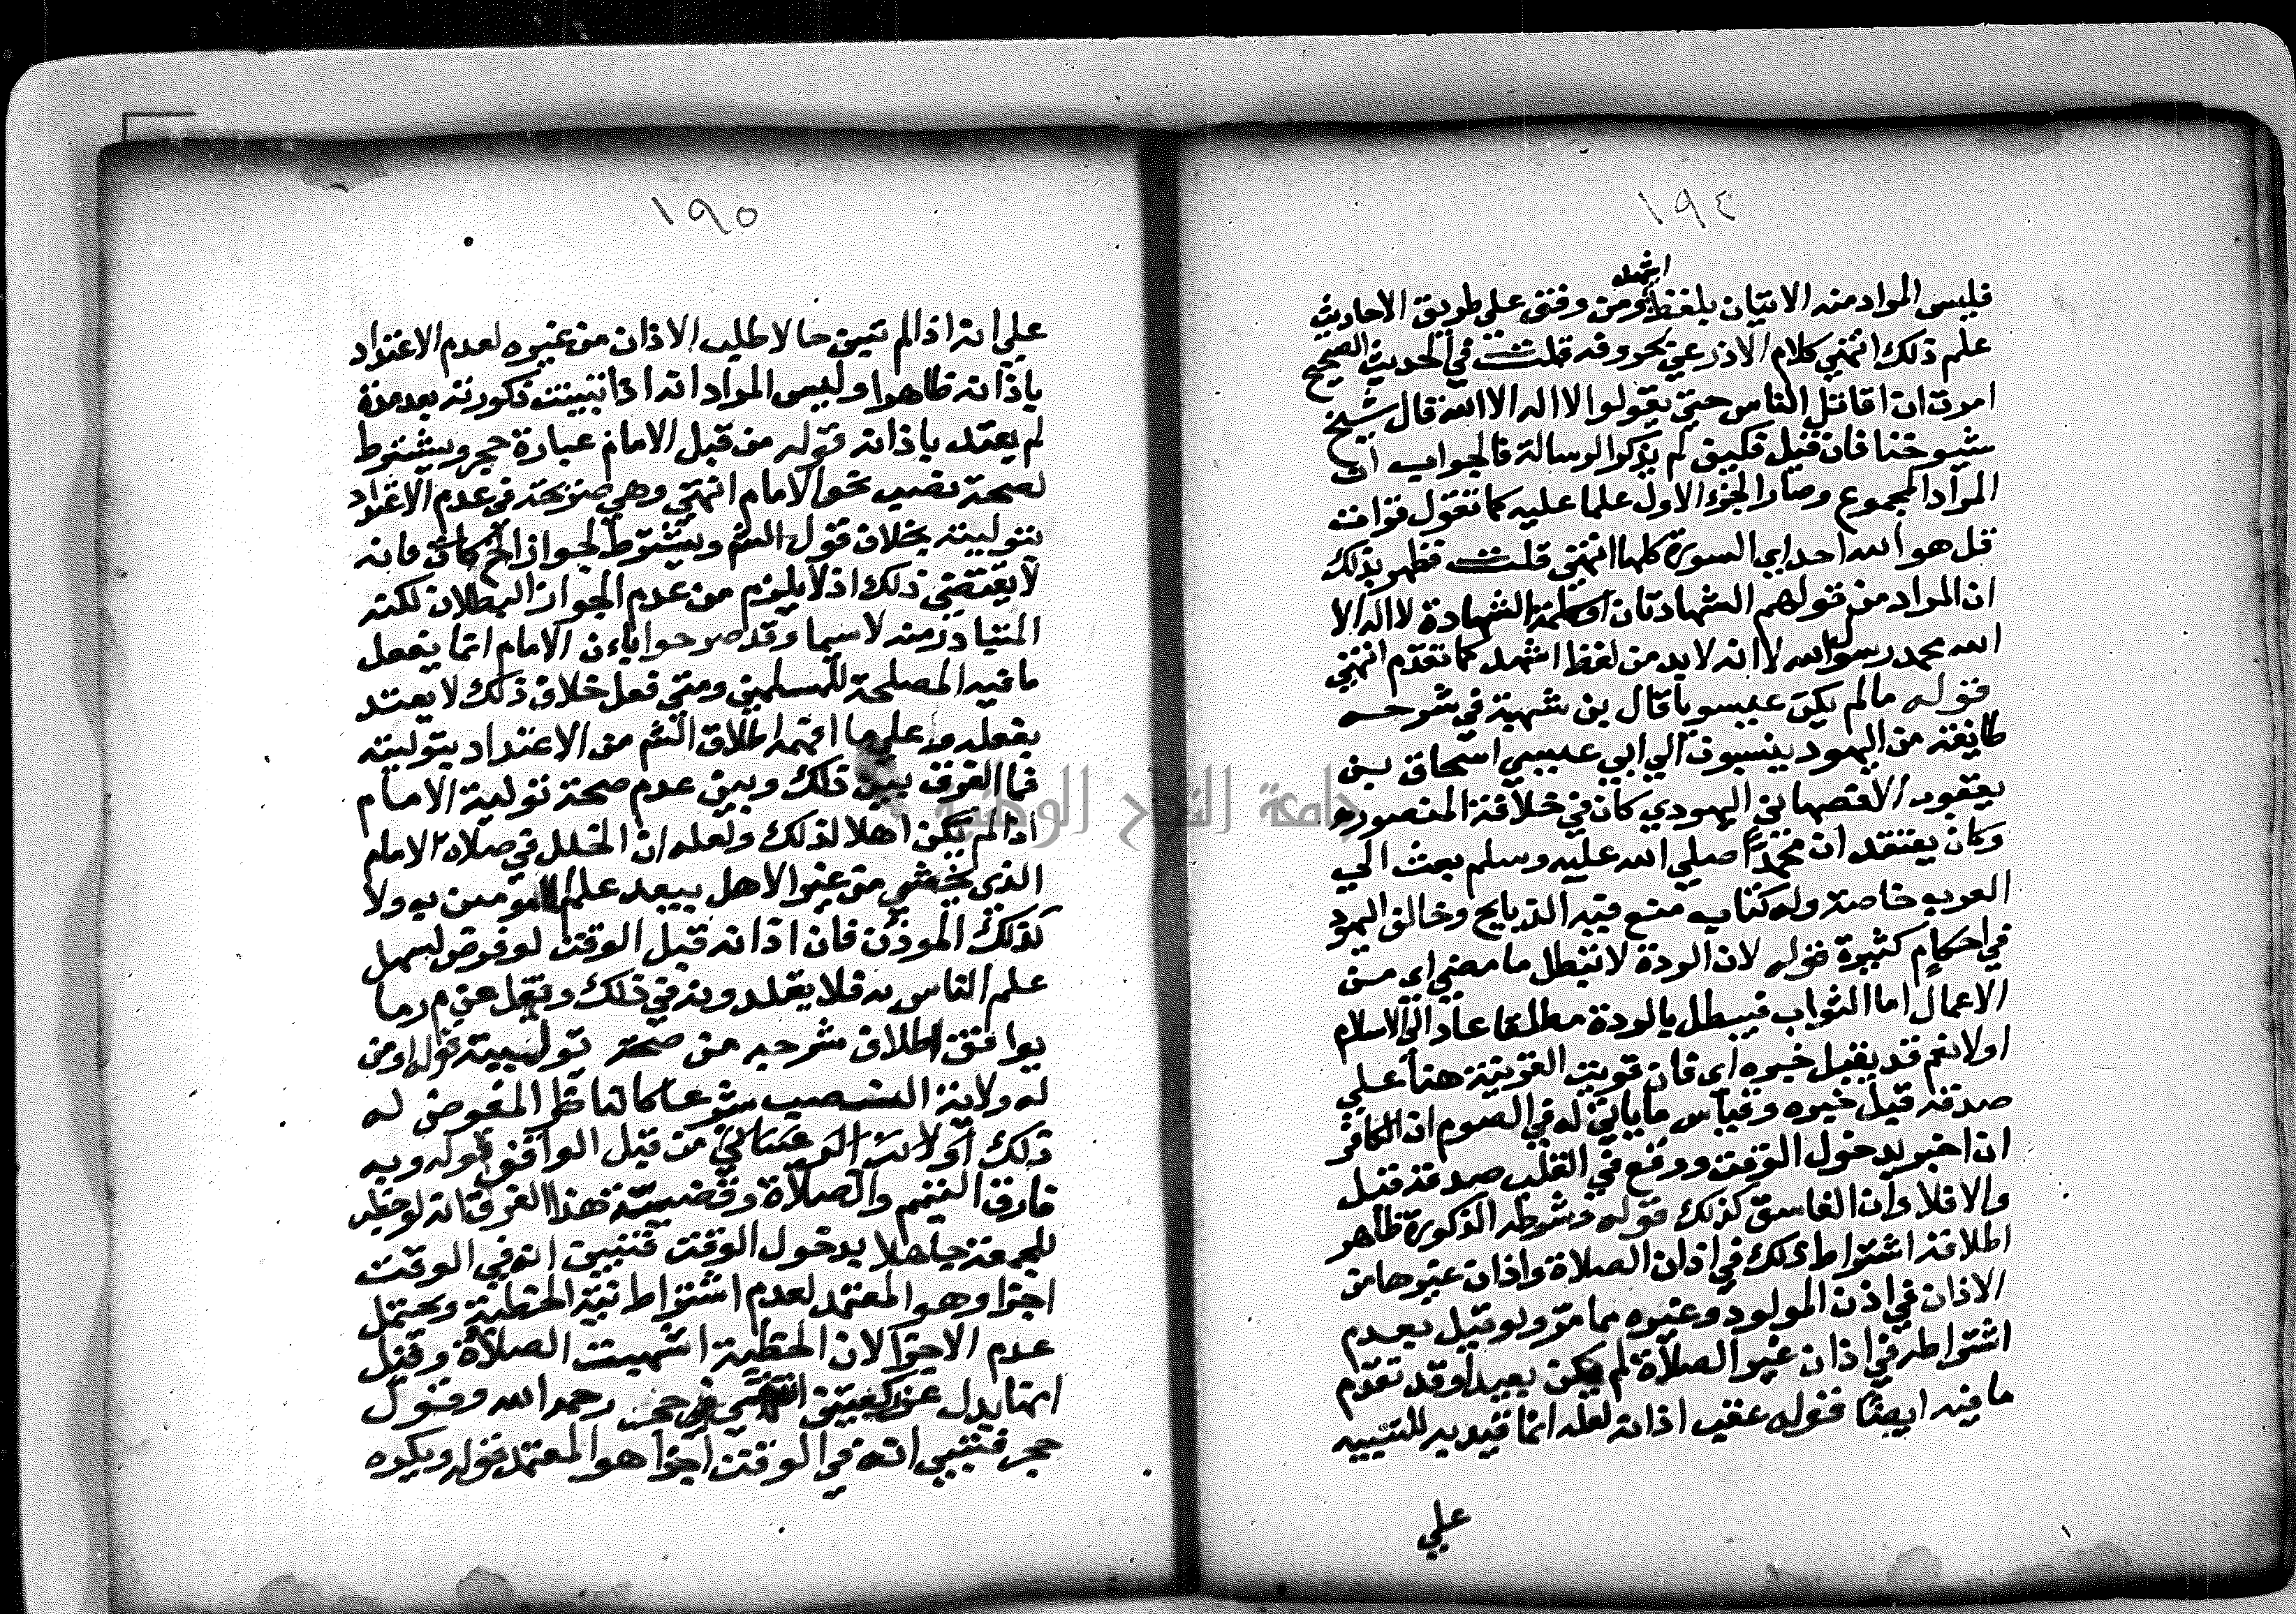 ١٩٤
اشهد
فليس المراد منه الاتيان بلفظ ومن وقف على طريق الاحاديث
علم ذلك انتهي كلام الاذرعي بحروفه قلت في الحديث الصحيح
امرت ان اقاتل الناس حتي يقولوا لا اله الا الله قال شيخ
شيوخنا فان قيل فكيف لم يذكر الرسالة فالجواب ان
المراد المجموع وصار الجزء الاول علما عليه كما تقول قرات
قل هو الله احد اي السورة كلها انتهي قلت فظهر بذلك
ان المراد من قولهم الشهادتان او كلمة الشهادة لا اله الا
الله محمد رسول الله لا انه لا بد من لفظ اشهد كما تقدم انتهي
قوله مالم يكن عيسويا قال بن شهبة في شرحه
طايفة من اليهود ينسبون الي ابي عيسي اسحاق بن
يعقوب الاصبهاني اليهودي كان في خلافة المنصور
وكان يعتقد ان محمدا صلي الله عليه وسلم بعث الي
العرب خاصة وله كتاب منع فيه الذبايح وخالف اليهود
في احكام كثيرة قوله لان الردة لا تبطل ما مضي اي من
الاعمال اما الثواب فيبطل بالردة مطلقا عاد الي الاسلام
اولا نعم قد يقبل خبره اي فان قويت القرينة هنا علي
صدقه قبل خبره وقياس ما ياتي له في الصوم ان الكافر
ان اخبر بدخول الوقت ووقع في القلب صدقه قبل
والا فلا وان الفاسق كذلك قوله وشرطه الذكورة ظاهر
اطلاقه اشتراط ذلك في اذان الصلاة واذان غيرها من
الاذان في اذن المولود وغيره مما مر ولو قيل بعدم
اشتراطه في اذان غير الصلاة لم يكن بعيدا وقد تقدم
ما فيه ايضا قوله عقب اذانه لعله انما قيد به للتنبيه
علي
١٩٥
علي انه اذا لم تتبين حالا طلب الاذان من غيره لعدم الاعتداد
باذانه ظاهرا وليس المراد انه اذا تبينت ذكورته بعد مدة
لم يعتد باذانه قوله من قبل الامام عبارة حجر ويشترط
لصحة نصب نحو الامام انتهي وهي صريحة في عدم الاعتداد
بتوليته بخلاف قول الشم ويشترط لجواز الخ فانه
لا يقتضي ذلك اذ لا يلزم من عدم الجواز البطلان لكنه
المتبادر منه لا سيما وقد صرحوا باءن الامام انما يفعل
ما فيه المصلحة للمسلمين ومتي فعل خلاف ذلك لا يعتد
بفعله علي ما افهمه اطلاق الشم من الاعتداد بتوليته
فما الفرق بين ذلك وبين عدم صحة تولية الامام
اذا لم يكن اهلا لذلك ولعله ان الخلل في صلاة الامام
الذي يخشي من غير الاهل يبعد علم المومنين به ولا
كذلك الموذن فان اذانه قبل الوقت لو فرض يسهل
علم الناس به فلا يقلدونه في ذلك ونقل عن م ر ما
يوافق اطلاق شرحه من صحة توليته قوله او من
له ولاية النصب شرعا كالناظر المفوض له
ذلك من قبل الواقف قوله وبه
فارق التيمم والصلاة وقضية هذا الفرق انه لو خطب
للجمعة جاهلا بدخول الوقت فتبين انه في الوقت
اجزا وهو المعتمد لعدم اشتراط نية الخطبة ويحتمل
عدم الاجزا لان الخطبة اشبهت الصلاة وقيل
انها بدل عن ركعتين انتهي رحمه الله وقول
حجر فتبين انه في الوقت اجزا هو المعتمد قوله ويكره